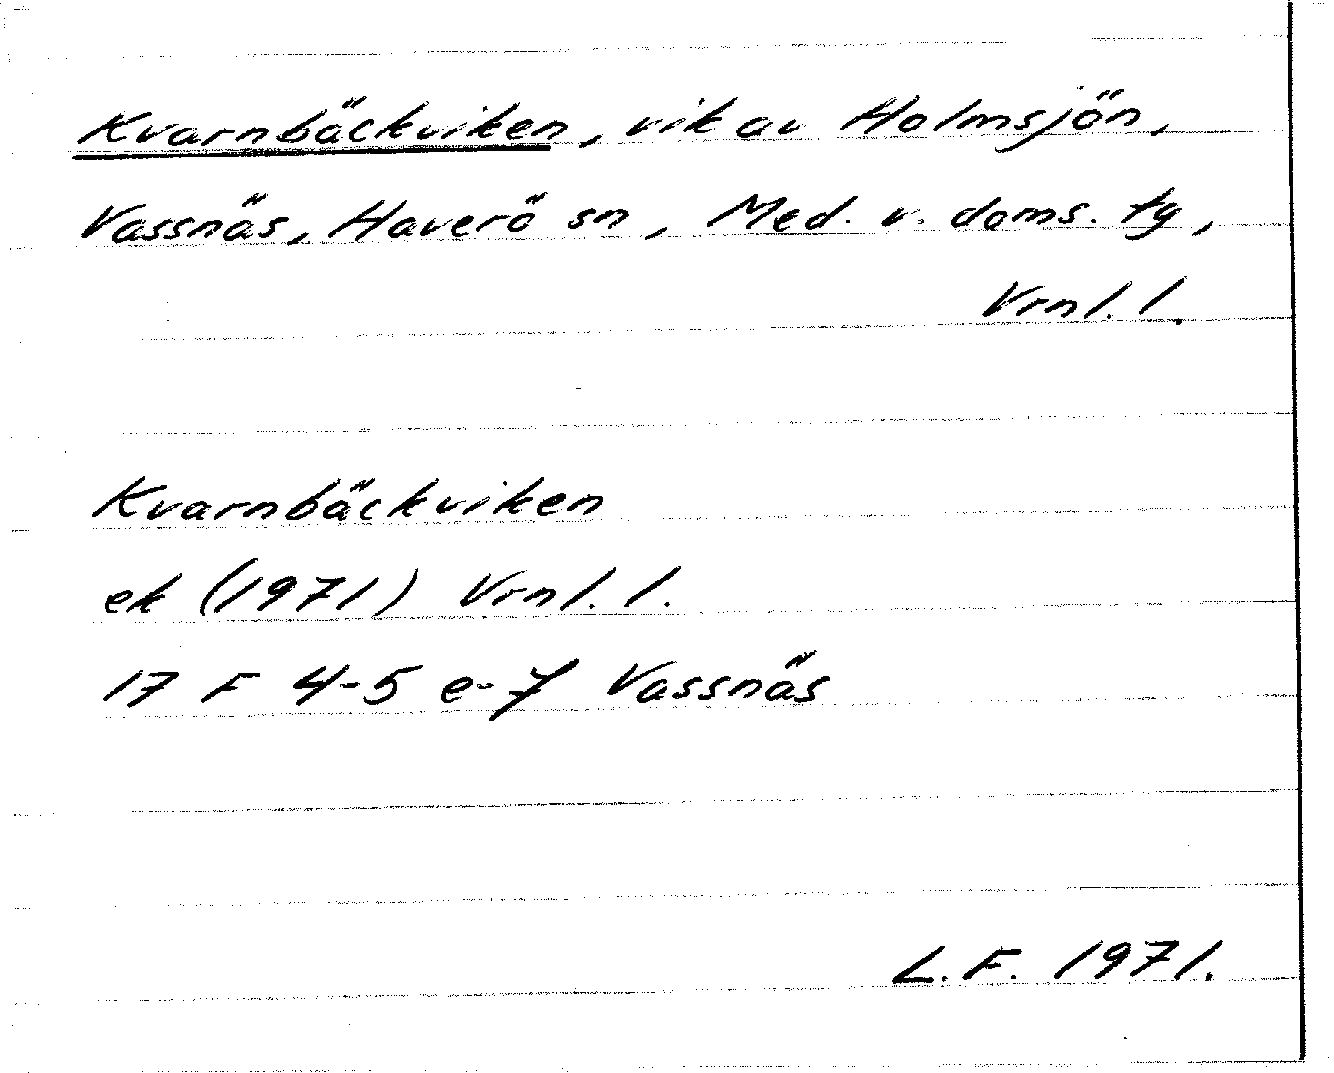 Kvarnbäckviken, vik av Holmsjön,
Vassnäs, Haverö sn, Med. v. doms. tg,
Vrnl. l.
Kvarnbäckviken
ek (1971) Vrnl. l.
17 F 4-5 e-f Vassnäs
L.F. 1971.